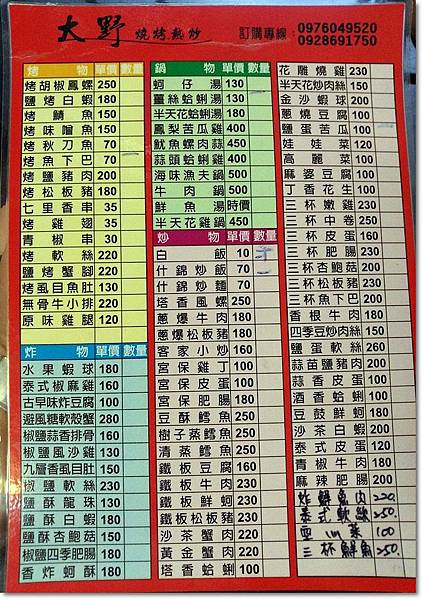 大野 燒烤熱炒 訂購專線：0976049520
0928691750
烤物 單價 數量
烤胡椒鳳螺 250
鹽烤白蝦 180
烤鯖魚 150
烤味噌魚 150
烤秋刀魚 70
烤魚下巴 70
烤鹽豬肉 200
烤松板豬 180
七里香串 35
烤雞翅 35
青椒串 30
烤軟絲 220
鹽烤蟹腳 220
烤虱目魚肚 150
無骨牛小排 220
原味雞腿 120
炸物 單價 數量
水果蝦球 180
泰式椒麻雞 160
古早味炸豆腐 100
避風糖軟殼蟹 280
椒鹽蒜香排骨 160
椒鹽風沙雞 130
九層香虱目肚 150
椒鹽軟絲 230
鹽酥龍珠 130
鹽酥白蝦 180
鹽酥杏鮑菇 150
椒鹽四季肥腸 180
香炸蚵酥 180
鍋物 單價 數量
蚵仔湯 130
薑絲蛤蜊湯 130
半天花蛤蜊湯 180
鳳梨苦瓜雞 400
魷魚螺肉蒜 450
蒜頭蛤蜊雞 450
海味漁夫鍋 500
牛肉鍋 500
鮮魚湯 時價
半天花雞鍋 450
炒物 單價 數量
白飯 10
什錦炒飯 70
什錦炒麵 70
塔香風螺 250
蔥爆牛肉 180
蔥爆松板豬 180
客家小炒 160
宮保雞丁 100
宮保皮蛋 100
宮保肥腸 180
豆酥鱈魚 250
樹子蒸鱈魚 250
清蒸鱈魚 250
鐵板豆腐 160
鐵板牛肉 230
鐵板鮮蚵 230
鐵板松板豬 230
沙茶蟹肉 220
黃金蟹肉 220
塔香蛤蜊 100
花雕燒雞 230
半天花炒肉絲 150
金沙蝦球 200
蔥燒豆腐 100
鹽蛋苦瓜 100
娃娃菜 120
高麗菜 100
麻婆豆腐 100
丁香花生 100
三杯嫩雞 230
三杯中卷 250
三杯皮蛋 160
三杯肥腸 230
三杯杏鮑菇 200
三杯松板豬 230
三杯魚下巴 200
香根牛肉 180
四季豆炒肉絲 150
鹽蛋軟絲 260
蒜苗鹽豬肉 200
蒜香皮蛋 100
酒香蛤蜊 100
豆鼓鮮蚵 180
沙茶白蝦 200
泰式皮蛋 120
青椒牛肉 180
麻辣肥腸 200
炸鮮魚肉 220
泰式軟絲 250
空心菜 100
三杯鮮魚 250